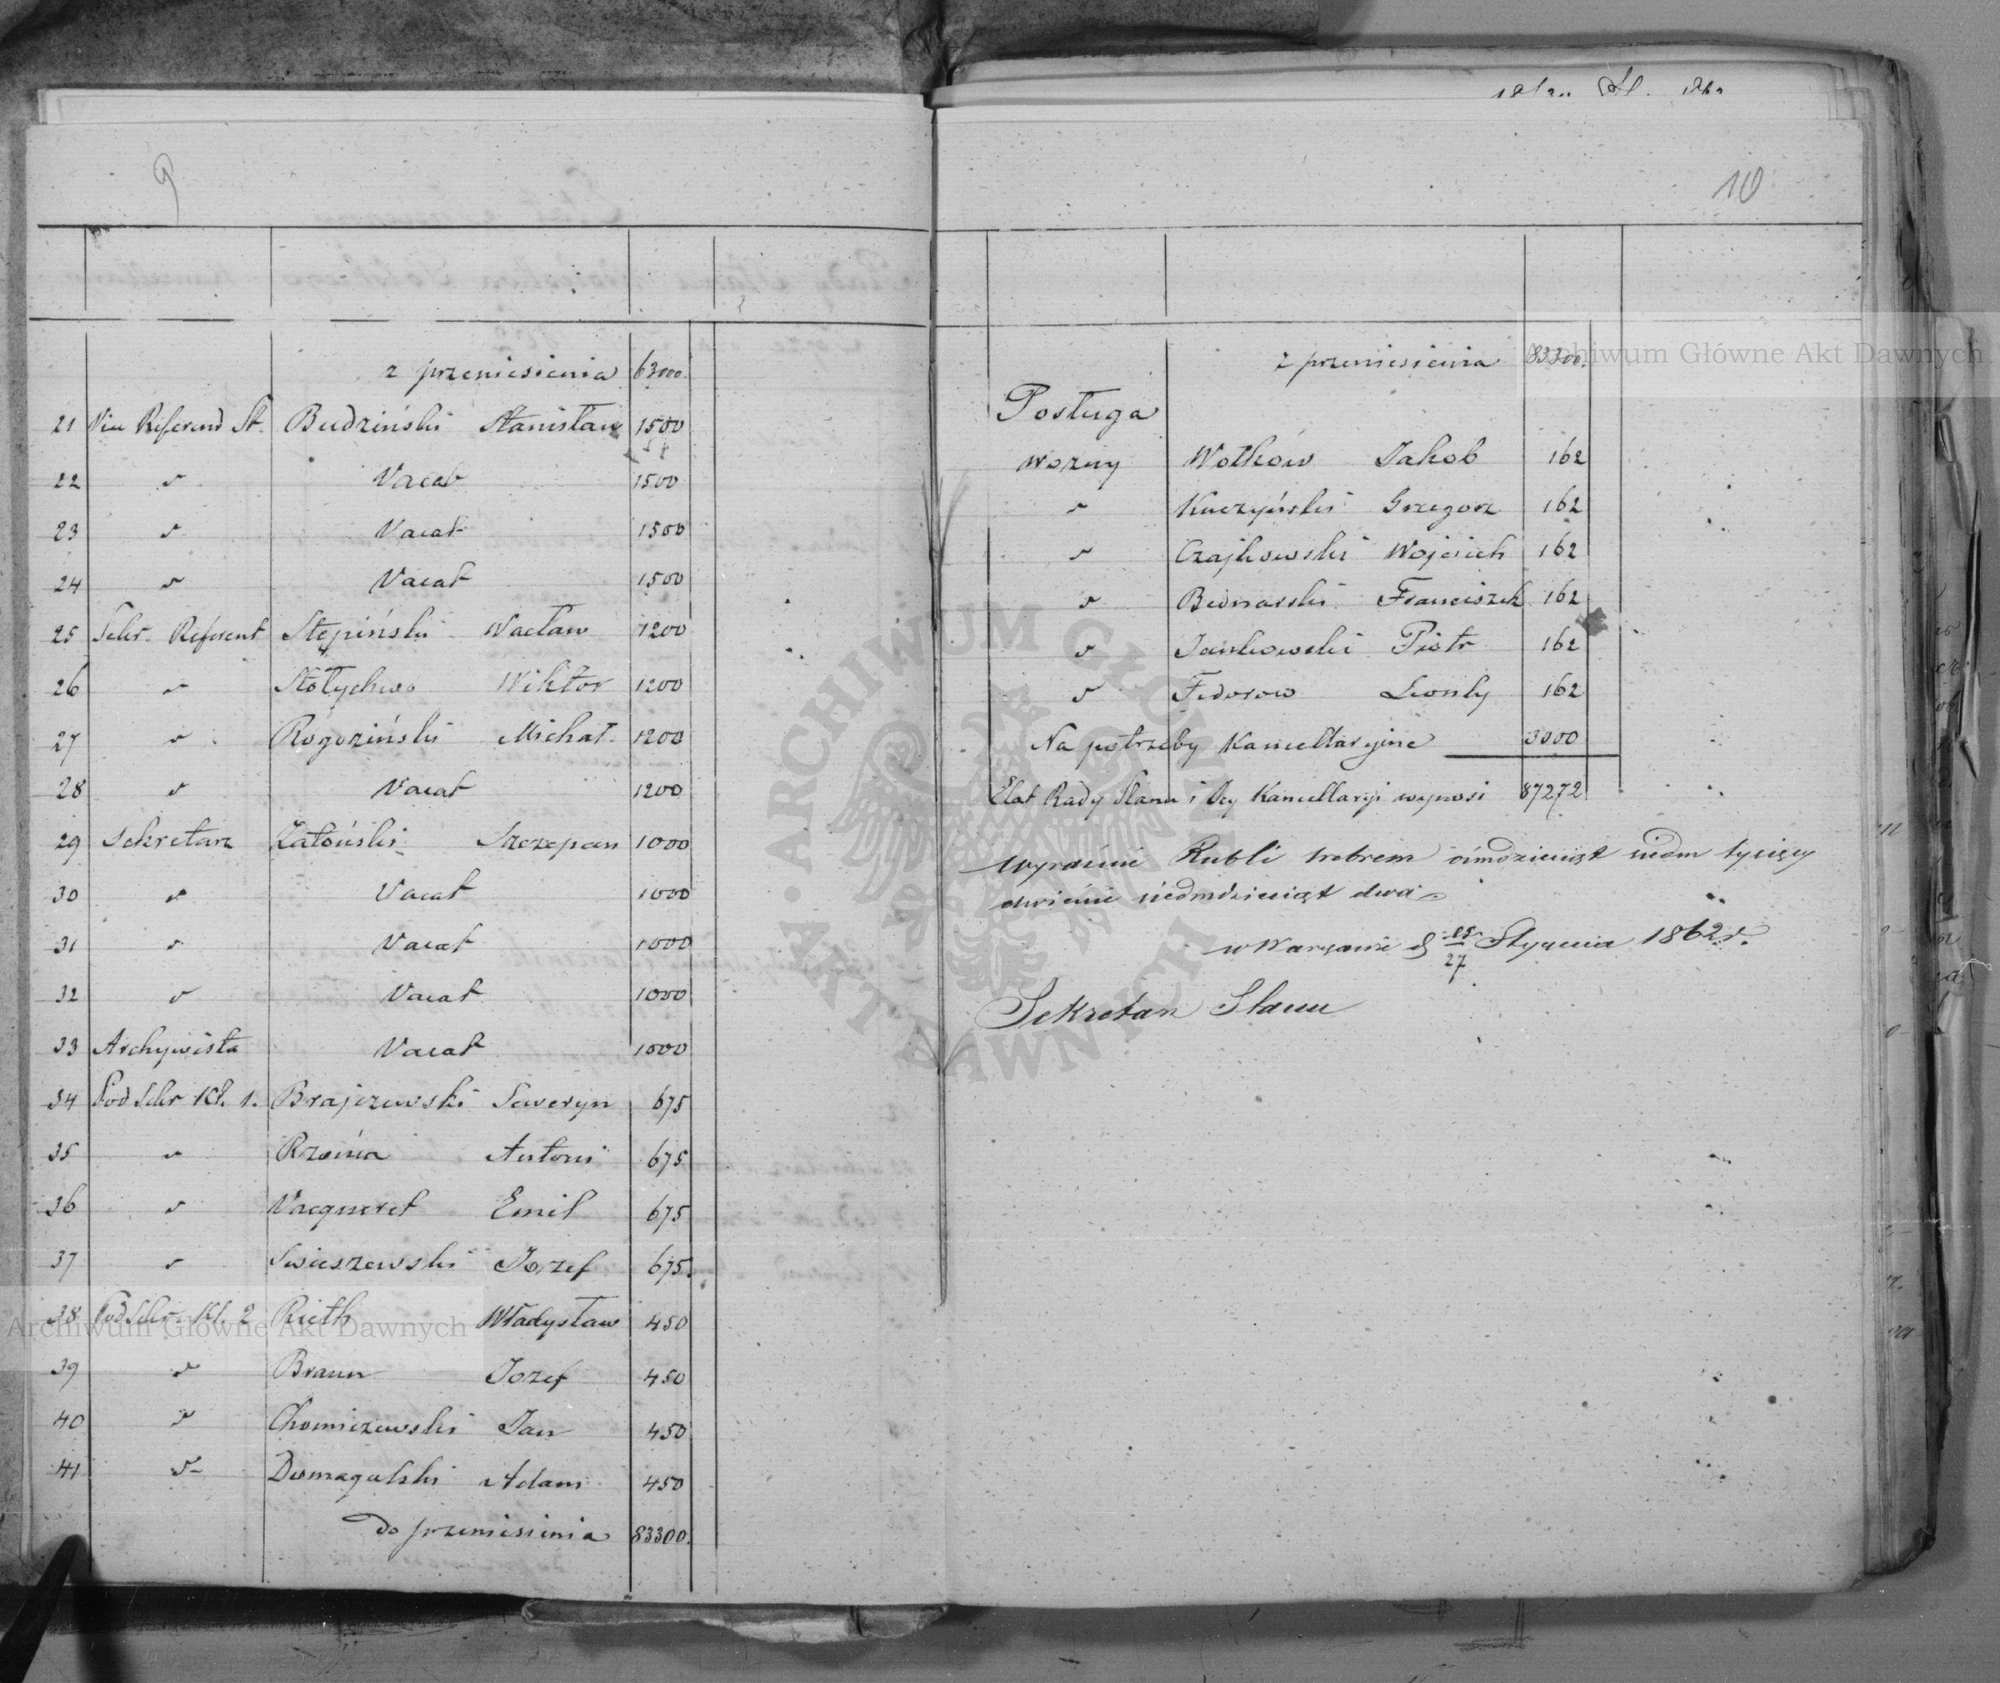 9
z przeniesienia 63000.
21 Vice Referend St. Budziński Stanisław 1500
22 " Vacat 1500
23 " Vacat 1500
24 " Vacat 1500
25 Sekr. Referent Stępiński Wacław 1200
26 " Stołychwo Wiktor 1200
27 " Rogoziński Michał 1200
28 " Vacat 1200
29 Sekretarz Załoński Szczepan 1000
30 " Vacat 1000
31 " Vacat 1000
32 " Vacat 1000
33 Archywista Vacat 1000
34 Pod Sekr Kl. 1. Brajczewski Seweryn 675
35 " Antoni 675
36 " Vacqueret Emil 675
37 " Swieszewski Jozef 675.
38 Pod Sekr. Kl. 2 Rieth Władysław 450
39 " Braun Jozef 450
40 " Chomiczewski Jan 450
41 " Domagalski Adam 450
do przeniesienia 83300.
10
z przeniesienia 83300.
Posługa
Wozny Wołków Jakob 162
" Kuczyński Grzegorz 162
" Czajkowski Wojciech 162
" Bednarski Franciszek 162
" Jankowski Piotr 162
" Fedorow Leonty 162
Na potrzeby Kancellaryine 3000
Etat Rady Stanu i Jey Kancellaryi wynosi 87272
wyraźnie Rubli srebrem ośmdziesiąt siedm tysięcy
dwieście siedmdziesiąt dwa
w Warszawie d 15/27 Stycznia 1862 r.
Sekretarz Stanu
Archiwum Główne Akt Dawnych
Archiwum Główne Akt Dawnych
ARCHIWUM GŁÓWNE AKT DAWNYCH